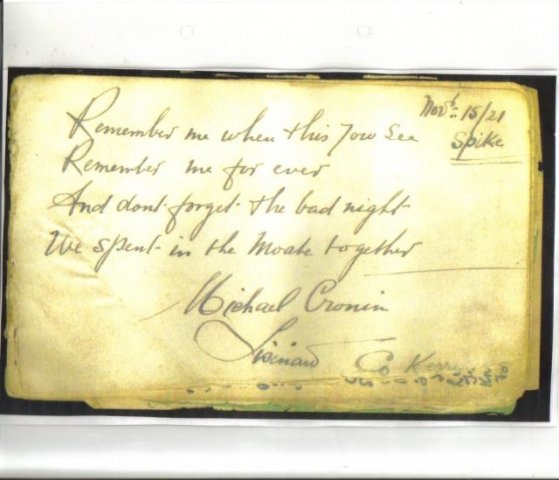 Nov. 15/21
Spike
Remember me when this you see
Remember me for ever
And dont forget the bad night
We spent in the Moate together
Michael Cronin
Co Kerry